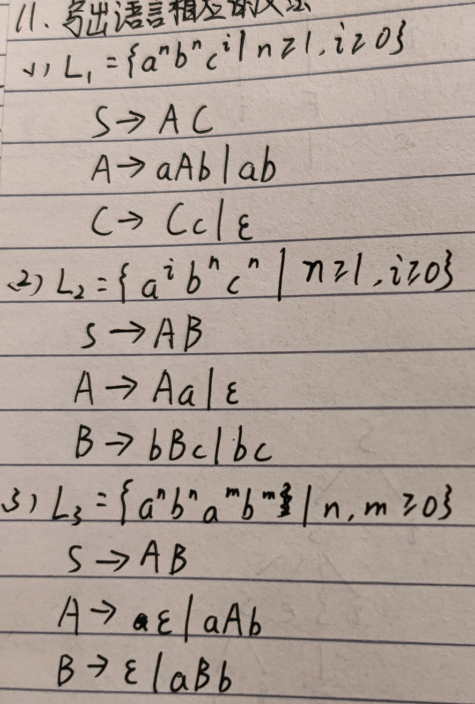 11、写出语言相应的文法
(1) L₁ = {aⁿbⁿcⁱ | n≥1, i≥0}
S → AC
A → aAb | ab
C → Cc | ε
(2) L₂ = {aⁱbⁿcⁿ | n≥1, i≥0}
S → AB
A → Aa | ε
B → bBc | bc
(3) L₃ = {aⁿbⁿaᵐbᵐ | n, m≥0}
S → AB
A → ε | aAb
B → ε | aBb